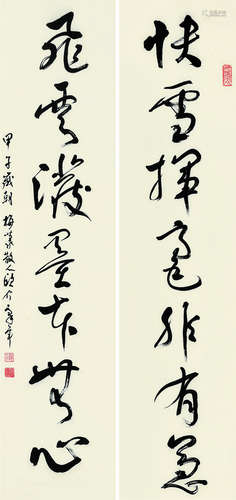 快雪揮毫非有意
飛雲潑墨本無心
甲子歲朝